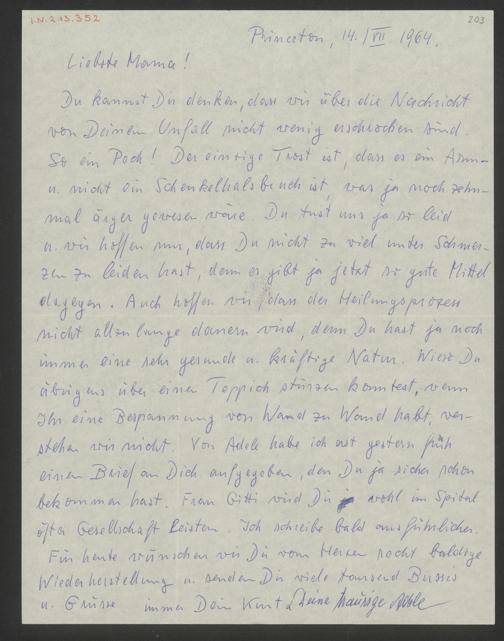 I.N. 213.352
203
Princeton, 14./VII 1964.
Liebste Mama!
Du kannst Dir denken, dass wir über die Nachricht
von Deinem Unfall nicht wenig erschrocken sind.
So ein Pech! Der einzige Trost ist, dass es ein Arm-
u. nicht ein Schenkelhalsbruch ist, was ja noch zehn-
mal ärger gewesen wäre. Du tust uns ja so leid
u. wir hoffen nur, dass Du nicht zu viel unter Schmer-
zen zu leiden hast, denn es gibt ja jetzt so gute Mittel
dagegen. Auch hoffen wir, dass der Heilungsprozess
nicht allzulange dauern wird, denn Du hast ja noch
immer eine sehr gesunde u. kräftige Natur. Wieso Du
übrigens über einen Teppich stürzen konntest, wenn
Ihr eine Bespannung von Wand zu Wand habt, ver-
stehen wir nicht. Von Adele habe ich erst gestern früh
einen Brief an Dich aufgegeben, den Du ja sicher schon
bekommen hast. Frau Gitti wird Dir wohl im Spital
öfter Gesellschaft leisten. Ich schreibe bald ausführlicher.
Für heute wünschen wir Dir vom Herzen recht baldige
Wiederherstellung u. senden Dir viele tausend Bussis
u. Grüsse immer Dein Kurt Deine traurige Adele